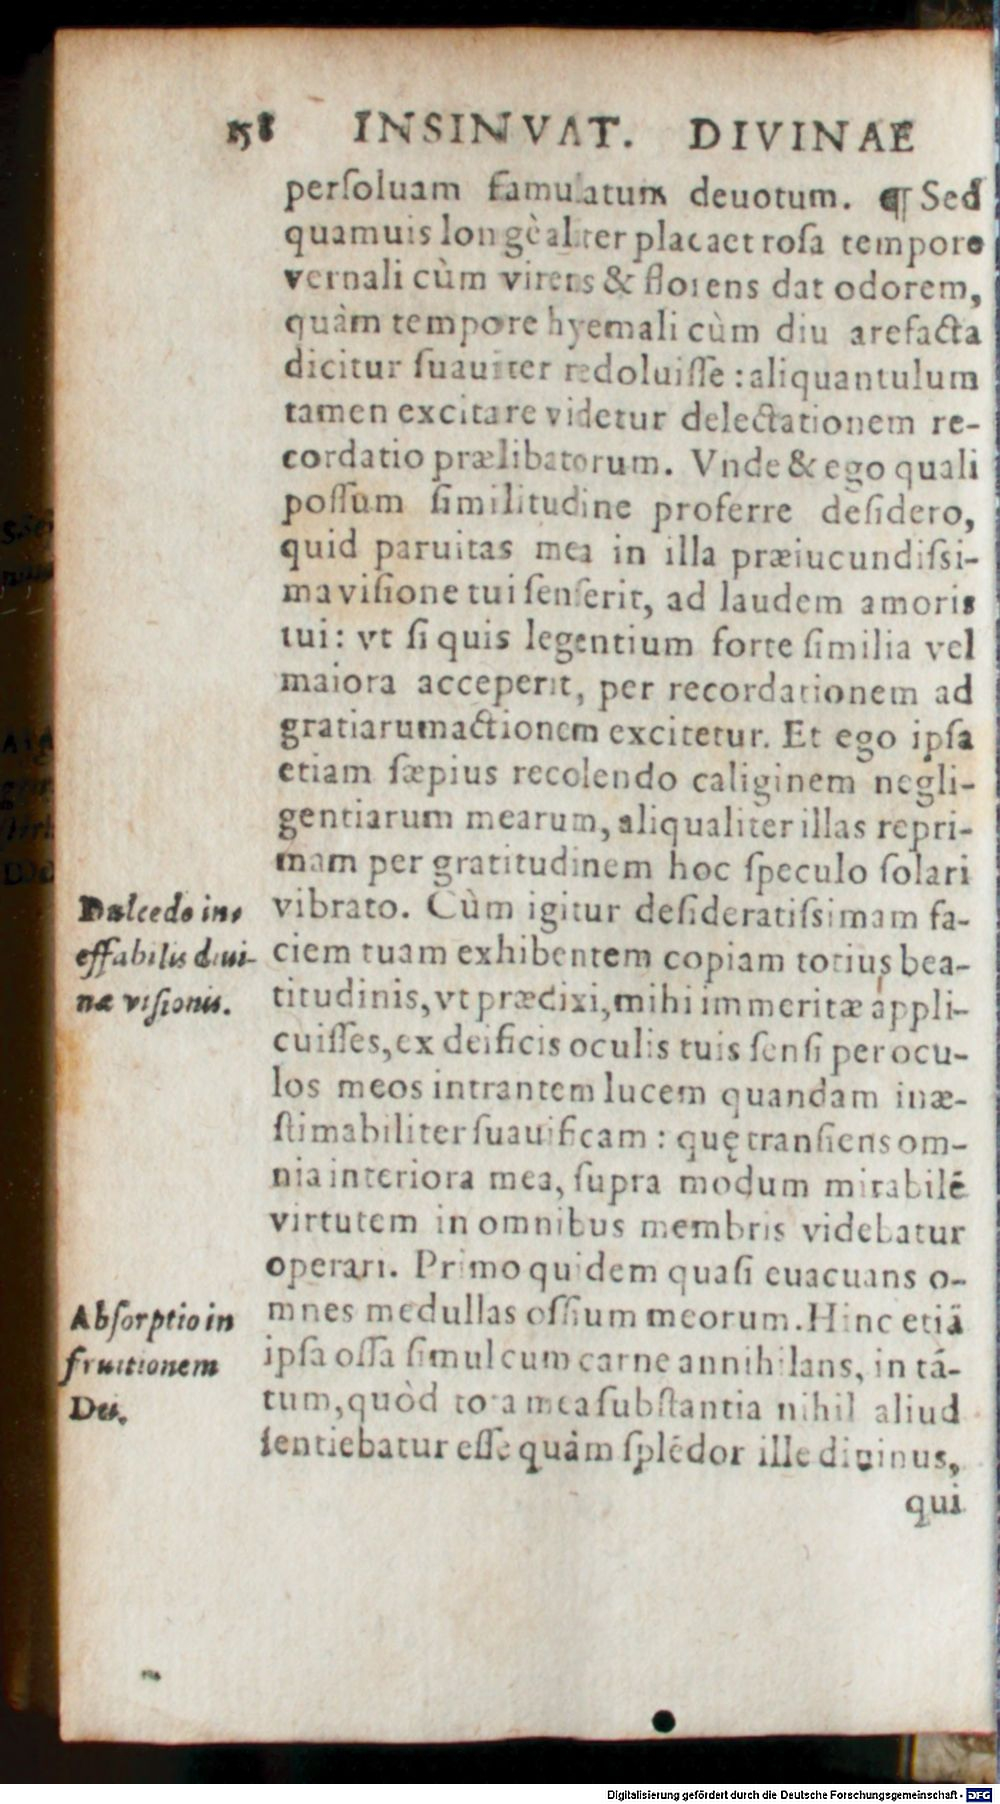 158 INSINVAT. DIVINAE
persoluam famulatum deuotum. ¶ Sed
quamuis longè aliter placaet rosa tempore
vernali cùm virens & florens dat odorem,
quàm tempore hyemali cùm diu arefacta
dicitur suauiter redoluisse: aliquantulum
tamen excitare videtur delectationem re-
cordatio prælibatorum. Vnde & ego quali
possum similitudine proferre desidero,
quid paruitas mea in illa præiucundissi-
ma visione tui senserit, ad laudem amoris
tui: vt si quis legentium forte similia vel
maiora acceperit, per recordationem ad
gratiarumactionem excitetur. Et ego ipsa
etiam sæpius recolendo caliginem negli-
gentiarum mearum, aliqualiter illas repri-
mam per gratitudinem hoc speculo solari
vibrato. Cùm igitur desideratissimam fa-
ciem tuam exhibentem copiam totius bea-
titudinis, vt prædixi, mihi immeritæ appli-
cuisses, ex deificis oculis tuis sensi per ocu-
los meos intrantem lucem quandam inæ-
stimabiliter suauificam: quę transiens om-
nia interiora mea, supra modum mirabilē
virtutem in omnibus membris videbatur
operari. Primo quidem quasi euacuans o-
mnes medullas ossium meorum. Hinc etiā
ipsa ossa simul cum carne annihilans, in tā-
tum, quòd tota mea substantia nihil aliud
sentiebatur esse quàm splēdor ille diuinus,
qui
Dulcedo in-
effabilis diui-
næ visionis.
Absorptio in
fruitionem
Dei.
Digitalisierung gefördert durch die Deutsche Forschungsgemeinschaft - DFG